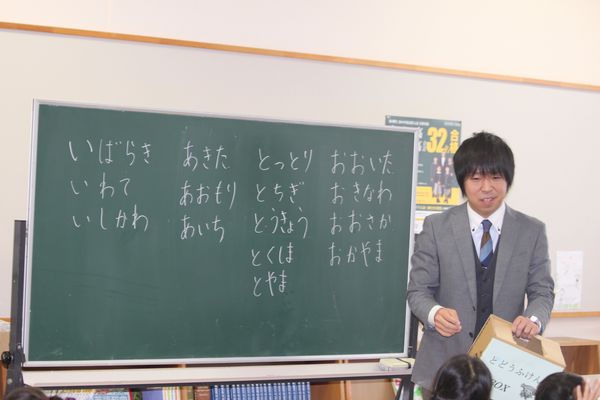 いばらき
いわて
いしかわ
あきた
あおもり
あいち
とっとり
とちぎ
とうきょう
とくしま
とやま
おおいた
おきなわ
おおさか
おかやま
32
合格
とどうふけん
BOX